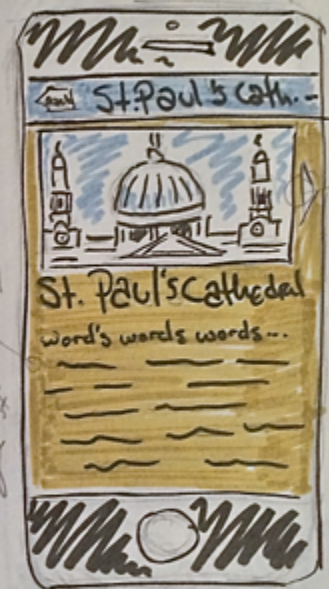 Back St. Paul's Cath. -
St. Paul's Cathedral
word's words words...